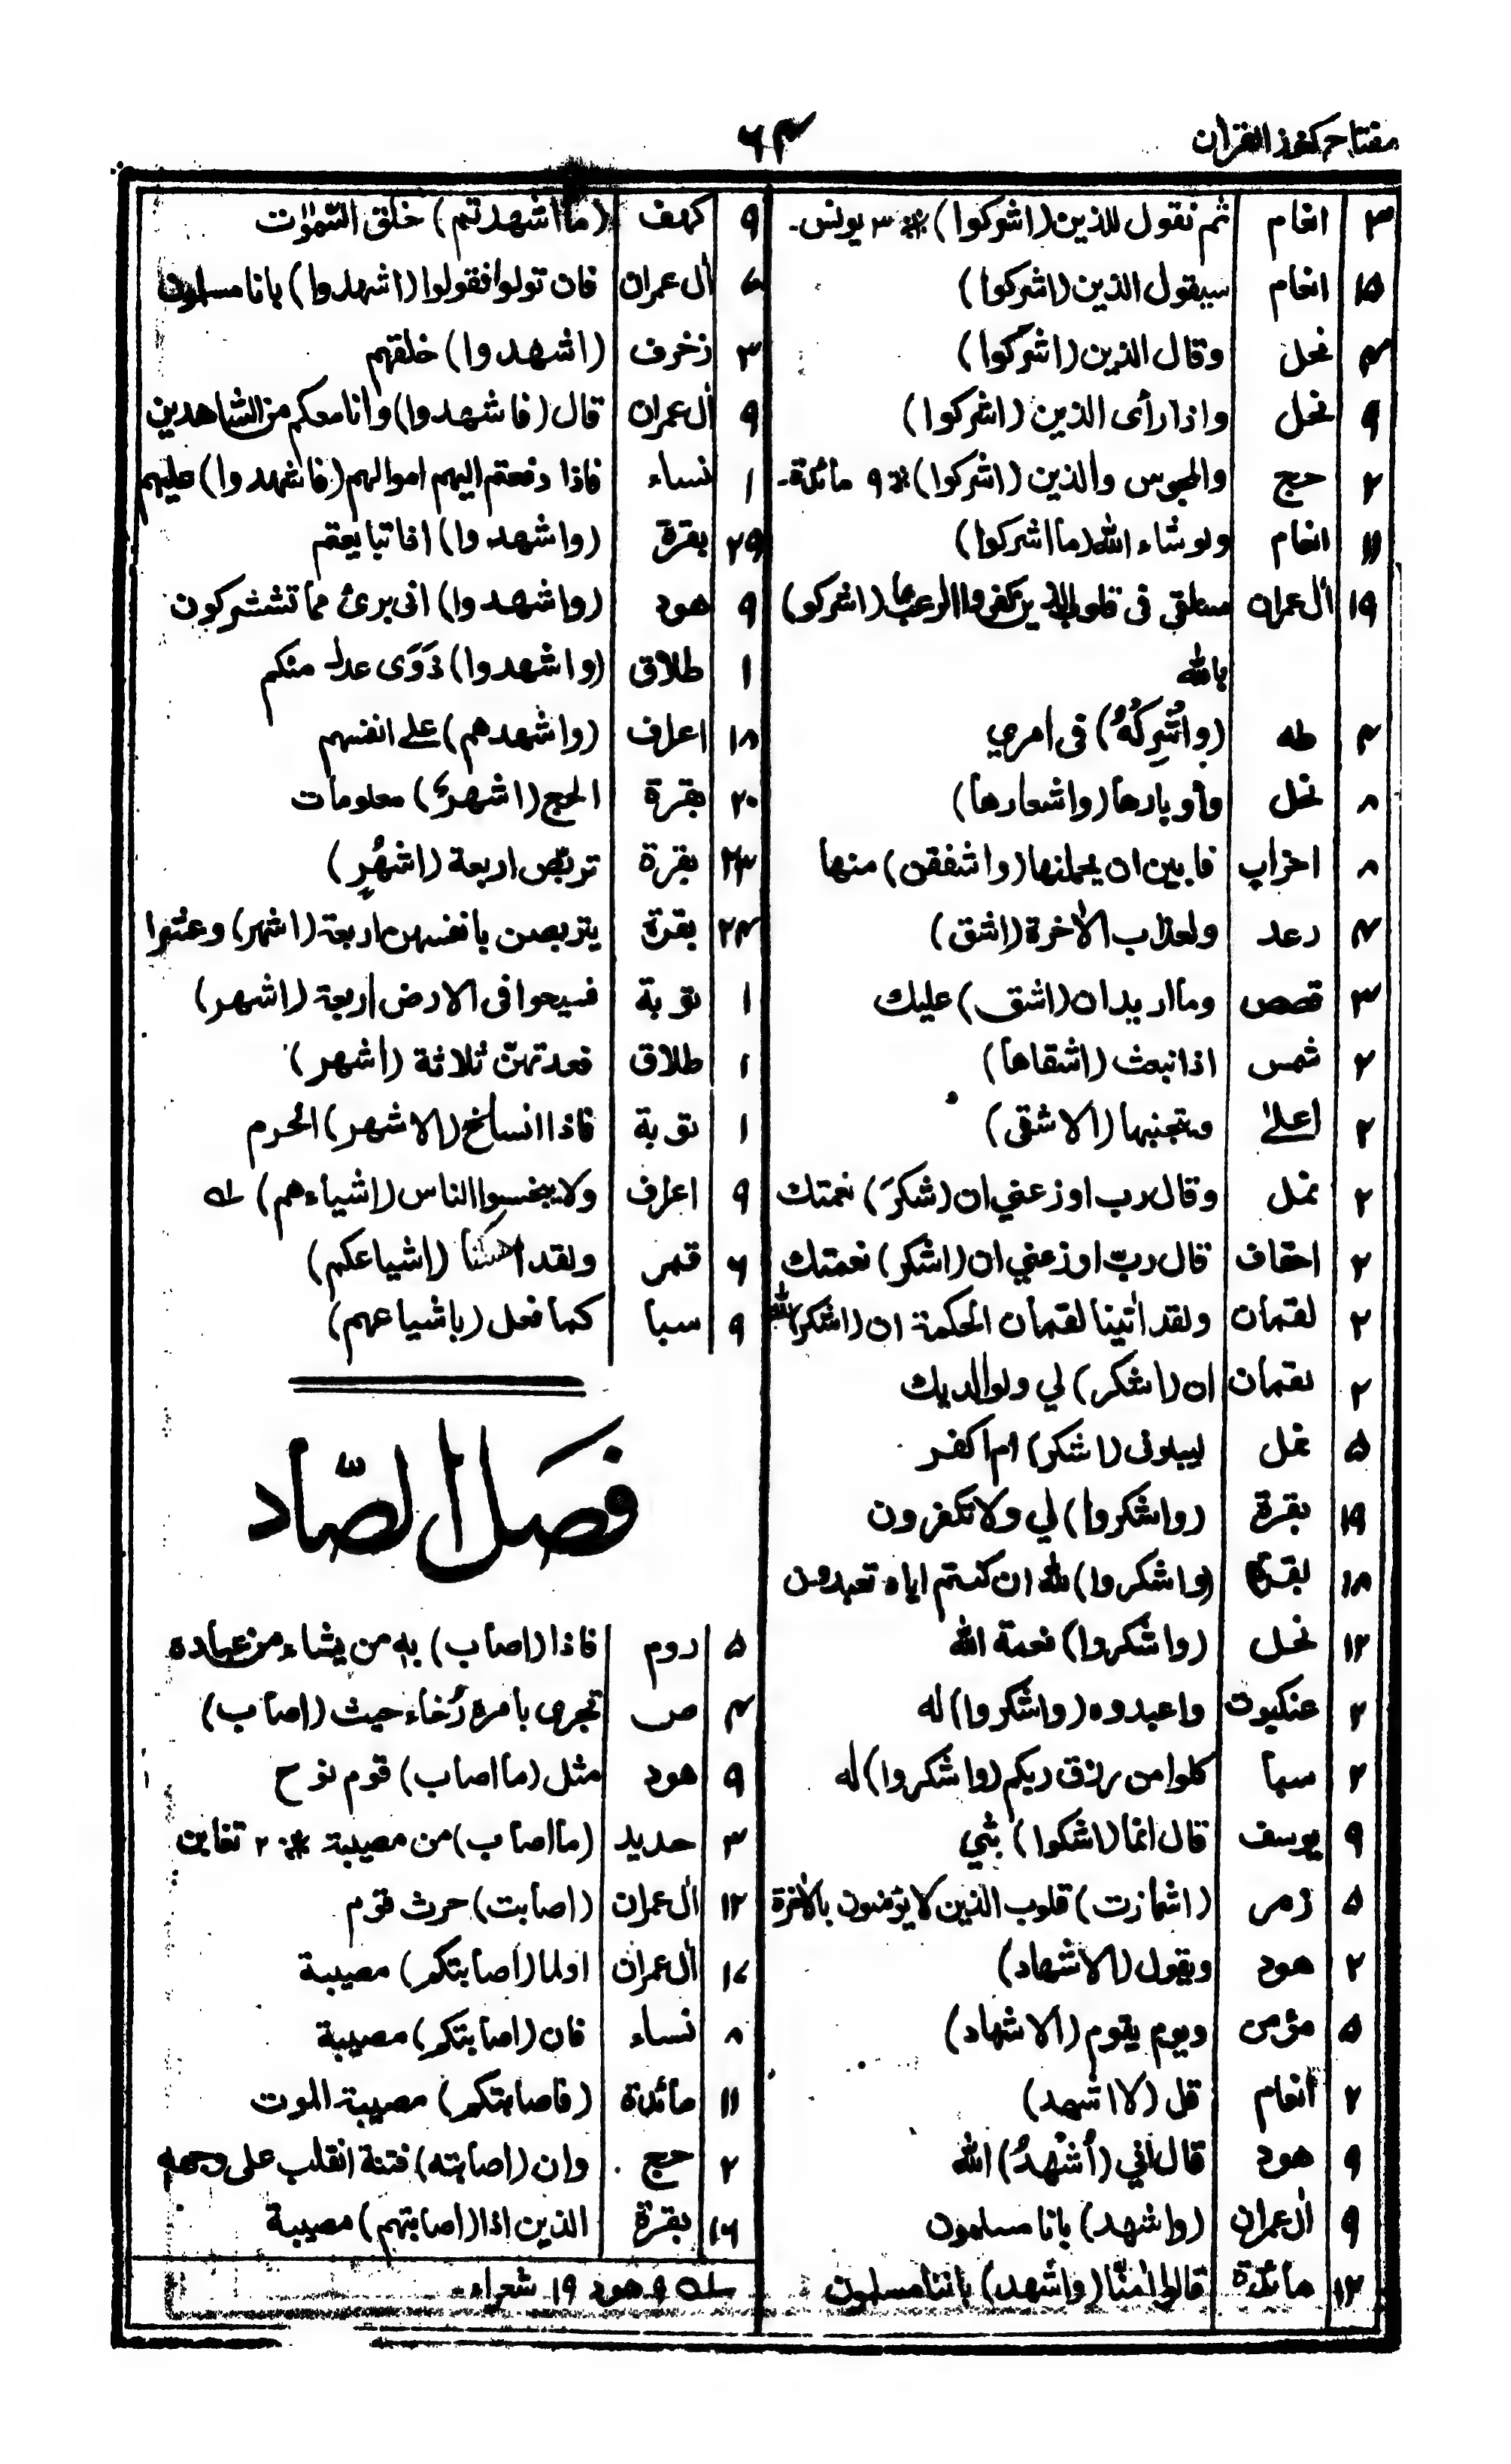 مفتاح كنوز القران
۶۴
۳ انعام ثم نقول للذين (اشركوا) ※ ۳ يونس۔
۱۵ انعام سيقول الذين (اشركوا)
۴ نحل وقال الذين (اشركوا)
۹ نحل واذا رأى الذين (اشركوا)
۲ حج والمجوس والذين (اشركوا) ※ ۹ مائدة۔
۱۱ انعام ولو شاء الله (ما اشركوا)
۱۹ اٰل عمران سنلقى فى قلوب الذين كفروا الرعب بما (اشركو)
بالله
۴ طه (وَاَشْرِكْهُ) فى امري
۸ نحل واوبارها (واشعارها)
۸ احزاب فابين ان يحملنها (واشفقن) منها
۴ رعد ولعذاب الاٰخرة (اشق)
۳ قصص وما اريد ان (اشق) عليك
۲ شمس اذا نبعث (اشقاها)
۲ اعلىٰ ويتجنبها (الاشقى)
۲ نمل وقال رب اوزعني ان (اشكرَ) نعمتك
۲ احقاف قال ربّ اوزعني ان (اشكر) نعمتك
۲ لقمان ولقد اٰتينا لقمان الحكمة ان (اشكر) لله
۲ لقمان ان (اشكر) لي ولوالديك
۵ نمل ليبلونى (اشكر) ام اكفر
۱۹ بقرة (واشكروا) لي ولا تكفرون
۱۸ بقرة (واشكروا) لله ان كنتم اياه تعبدون
۱۲ نحل (واشكروا) نعمة الله
۲ عنكبوت واعبدوه (واشكروا) له
۲ سبا كلوا من رزق ربكم (واشكروا) له
۹ يوسف قال انما (اشكوا) بثي
۵ زمر (اشمازت) قلوب الذين لا يؤمنون بالاٰخرة
۲ هود ويقول (الاشهاد)
۵ مؤمن ويوم يقوم (الاشهاد)
۲ انعام قل (لا اشهد)
۹ هود قال اني (اُشْهِدُ) الله
۹ اٰل عمران (واشهد) بانا مسلمون
۱۲ مائدة قالوا اٰمنّا (واشهد) باننا مسلمون
۹ كهف (ما اشهدتم) خلق السّمٰوٰت
۶ اٰل عمران فان تولوا فقولوا (اشهدوا) بانا مسلمون
۳ زخرف (اشهدوا) خلقهم
۹ اٰل عمران قال (فاشهدوا) وانا معكم من الشاهدين
۱ نساء فاذا دفعتم اليهم اموالهم (فاشهدوا) عليهم
۲۹ بقرة (واشهدوا) اذا تبايعتم
۹ هود (واشهدوا) انى برئ مما تششركون
۱ طلاق (واشهدوا) ذَوَى عدل منكم
۱۸ اعراف (واشهدهم) على انفسهم
۲۰ بقرة الحج (اشهرٌ) معلومات
۲۳ بقرة تربّص اربعة (اشهُرٍ)
۲۴ بقرة يتربصن بانفسهن اربعة (اشهر) وعشرا
۱ توبة فسيحوا فى الارض اربعة (اشهر)
۱ طلاق فعدتهنّ ثلاثة (اشهر)
۱ توبة فاذا انسلخ (الاشهر) الحرم
۹ اعراف ولا يبخسوا الناس (اشياءهم) لـه
۶ قمر ولقد اهلكنا (اشياعكم)
۹ سبا كما فعل (باشياعهم)
فصل الصّاد
۵ روم فاذا (اصاب) به من يشاء من عباده
۴ ص تجرى بامره رُخاء حيث (اصاب)
۹ هود مثل (ما اصاب) قوم نوح
۳ حديد (ما اصاب) من مصيبة ※ ۲ تغابن
۱۲ اٰل عمران (اصابت) حرث قوم
۱۷ اٰل عمران اولما (اصابتكم) مصيبة
۸ نساء فان (اصابتكم) مصيبة
۱۱ مائدة (فاصابتكم) مصيبة الموت
۲ حج وان (اصابته) فتنة انقلب على وجهه
۱۶ بقرة الذين اذا (اصابتهم) مصيبة
لـه ۹ هود ۱۹ شعراء۔